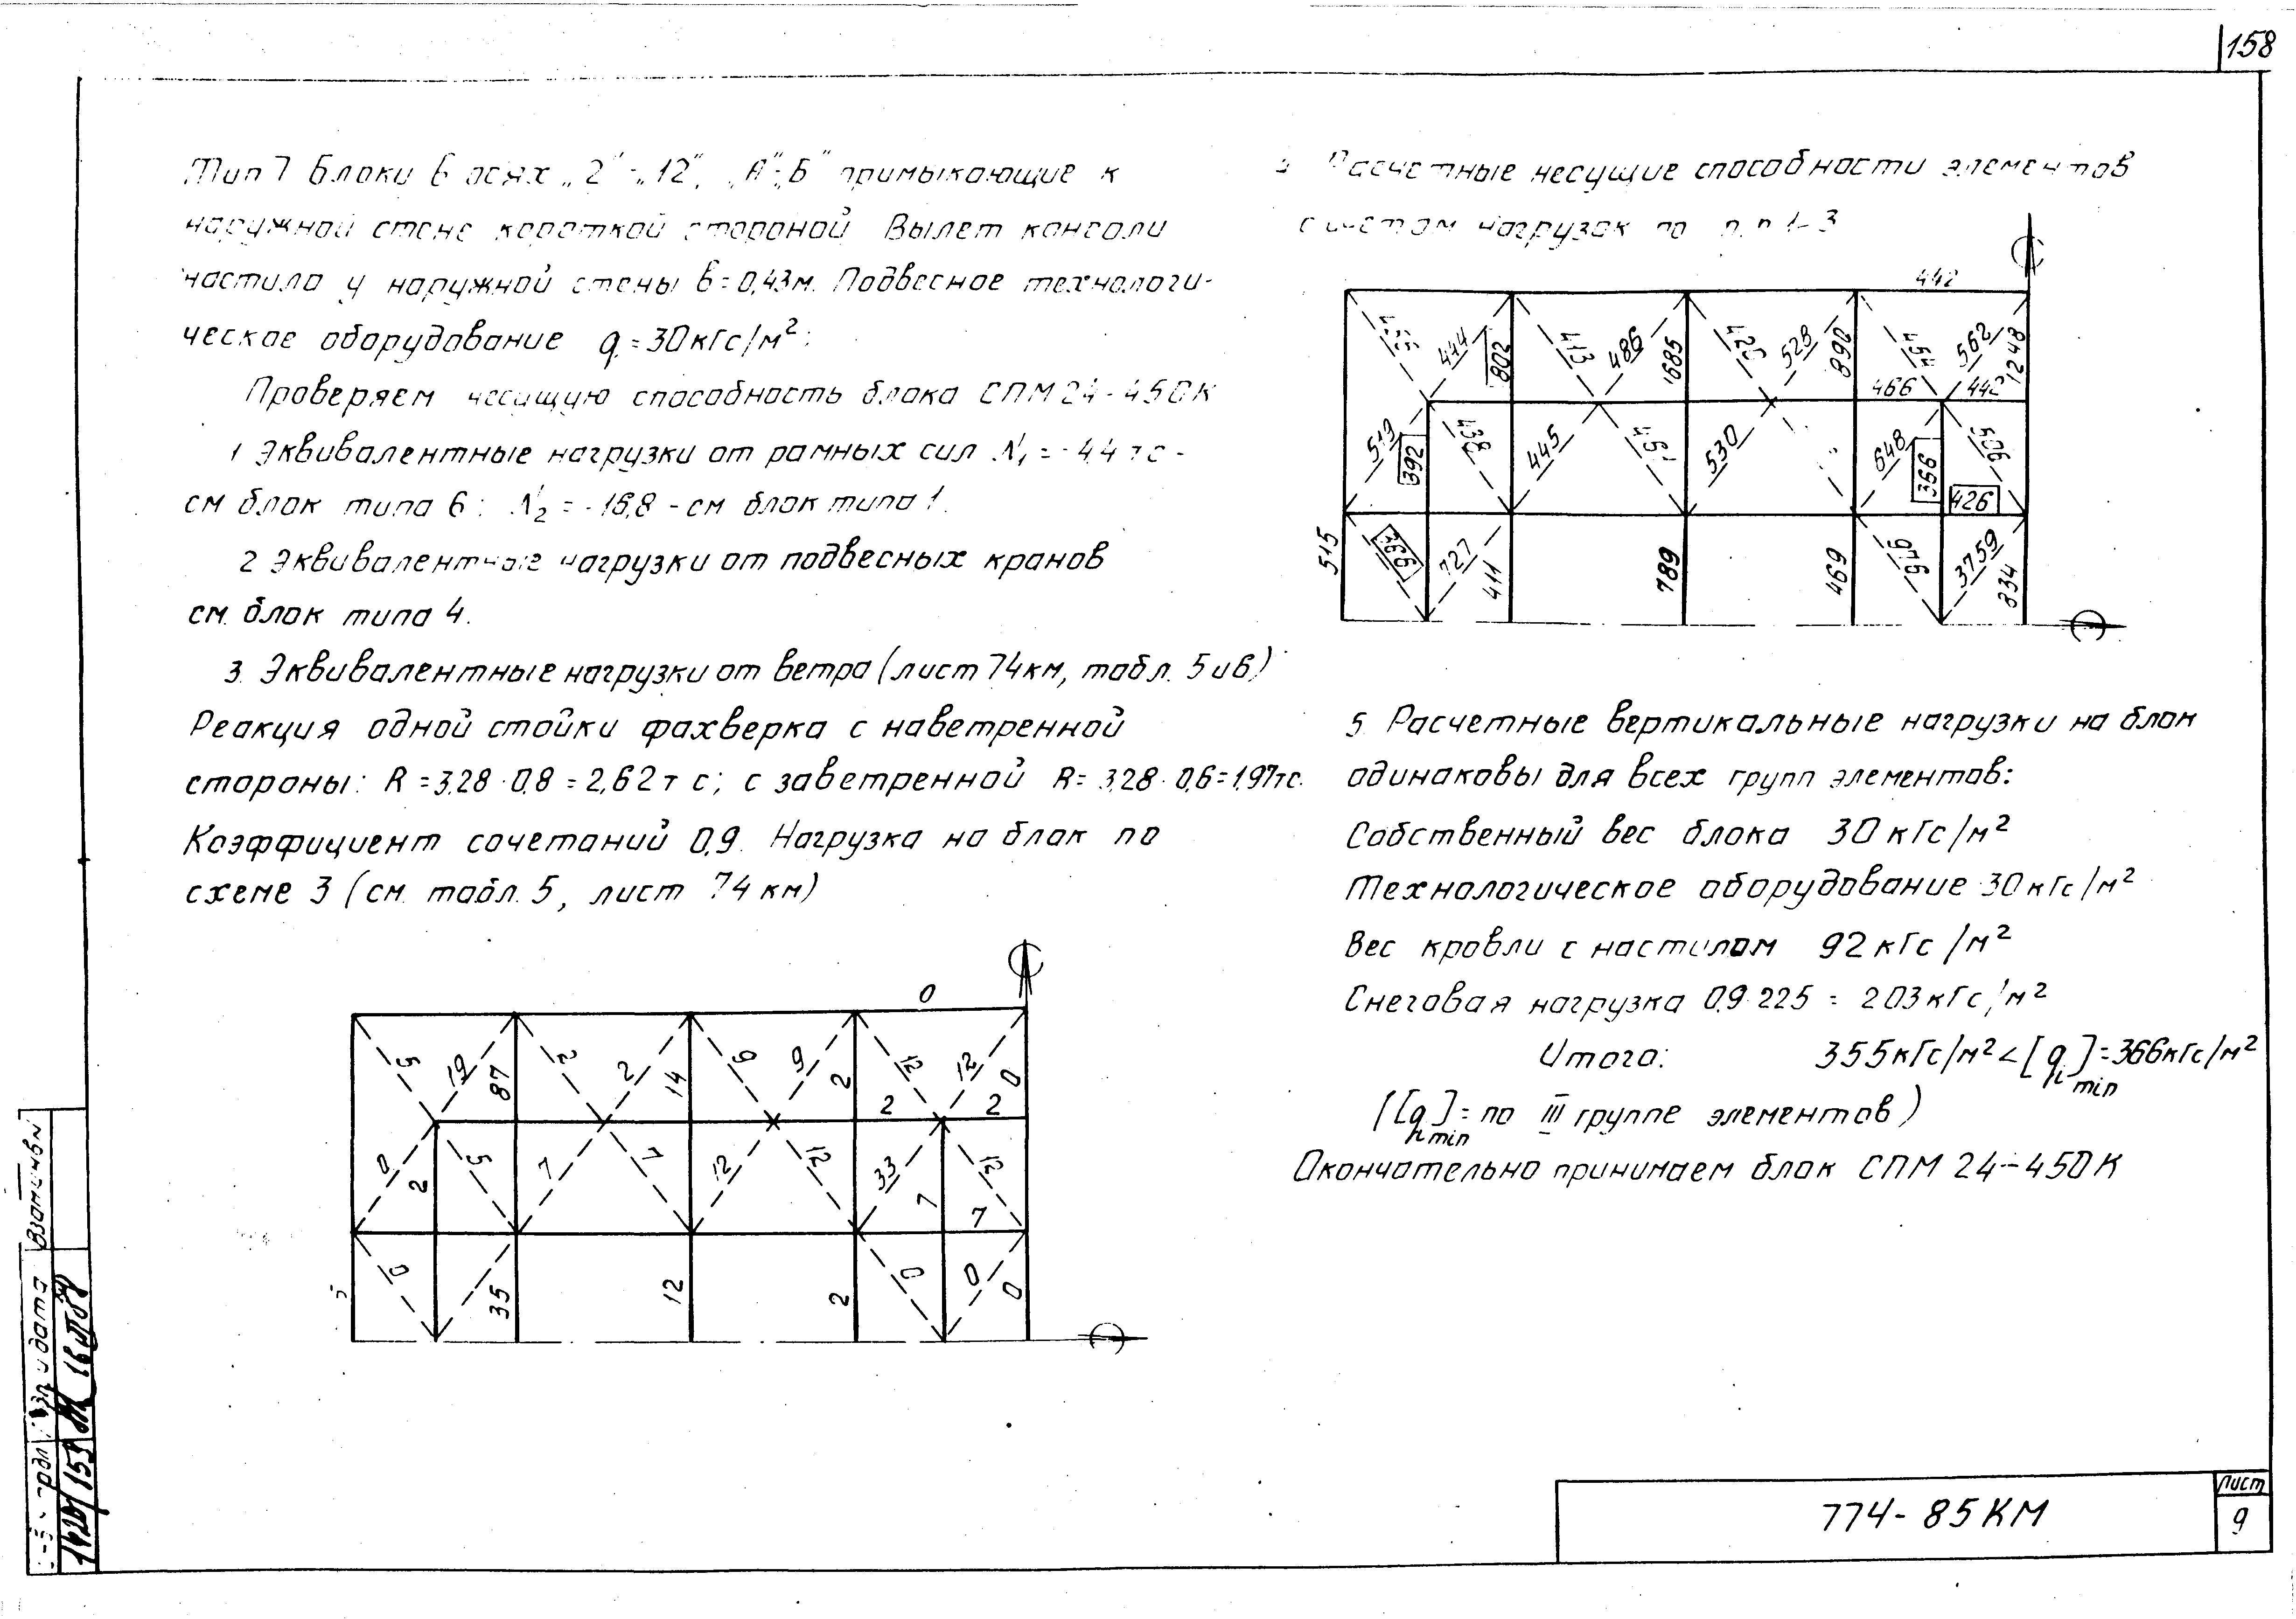 158
Тип 7 Блоки в осях „2"÷„12", „А"÷„Б" примыкающие к
наружной стене короткой стороной Вылет консоли
настила у наружной стены в=0,43м. Подвесное технологи-
ческое оборудование q=30кгс/м²:
Проверяем несущую способность блока СПМ24-450К
1 Эквивалентные нагрузки от рамных сил N₁ = -4.4 тс -
см блок типа 6: N₂ = -16,8 - см блок типа 1.
2 Эквивалентные нагрузки от подвесных кранов
см. блок типа 4.
3. Эквивалентные нагрузки от ветра (лист 74км, табл. 5 и 6)
Реакция одной стойки фахверка с наветренной
стороны: R = 3,28 · 0,8 = 2,62 т с; с заветренной R = 3,28 · 0,6 = 1,97тс.
Коэффициент сочетаний 0,9. Нагрузка на блок по
схеме 3 (см. табл. 5, лист 74 км)
0
5 19 87 2 2 14 9 9 2 12 12 0
2 2
0 2 5 7 7 12 12 33 7 12
7
0 35 12 2 0 0 0
Расчетные несущие способности элементов
с учетом нагрузок по п.п 1-3
442
444 802 413 486 1685 425 528 890 454 562 1248
466 442
519 392 438 445 451 530 648 366 506
426
515 366 727 411 789 469 676 3759 834
5 Расчетные вертикальные нагрузки на блок
одинаковы для всех групп элементов:
Собственный вес блока 30 кгс/м²
Технологическое оборудование 30 кгс/м²
Вес кровли с настилом 92 кгс/м²
Снеговая нагрузка 0.9·225 = 203 кгс/м²
Итого: 355кгс/м² < [q]=366кгс/м²
n min
([q]= по III группе элементов)
n min
Окончательно принимаем блок СПМ 24-450К
774- 85 КМ
Лист
9